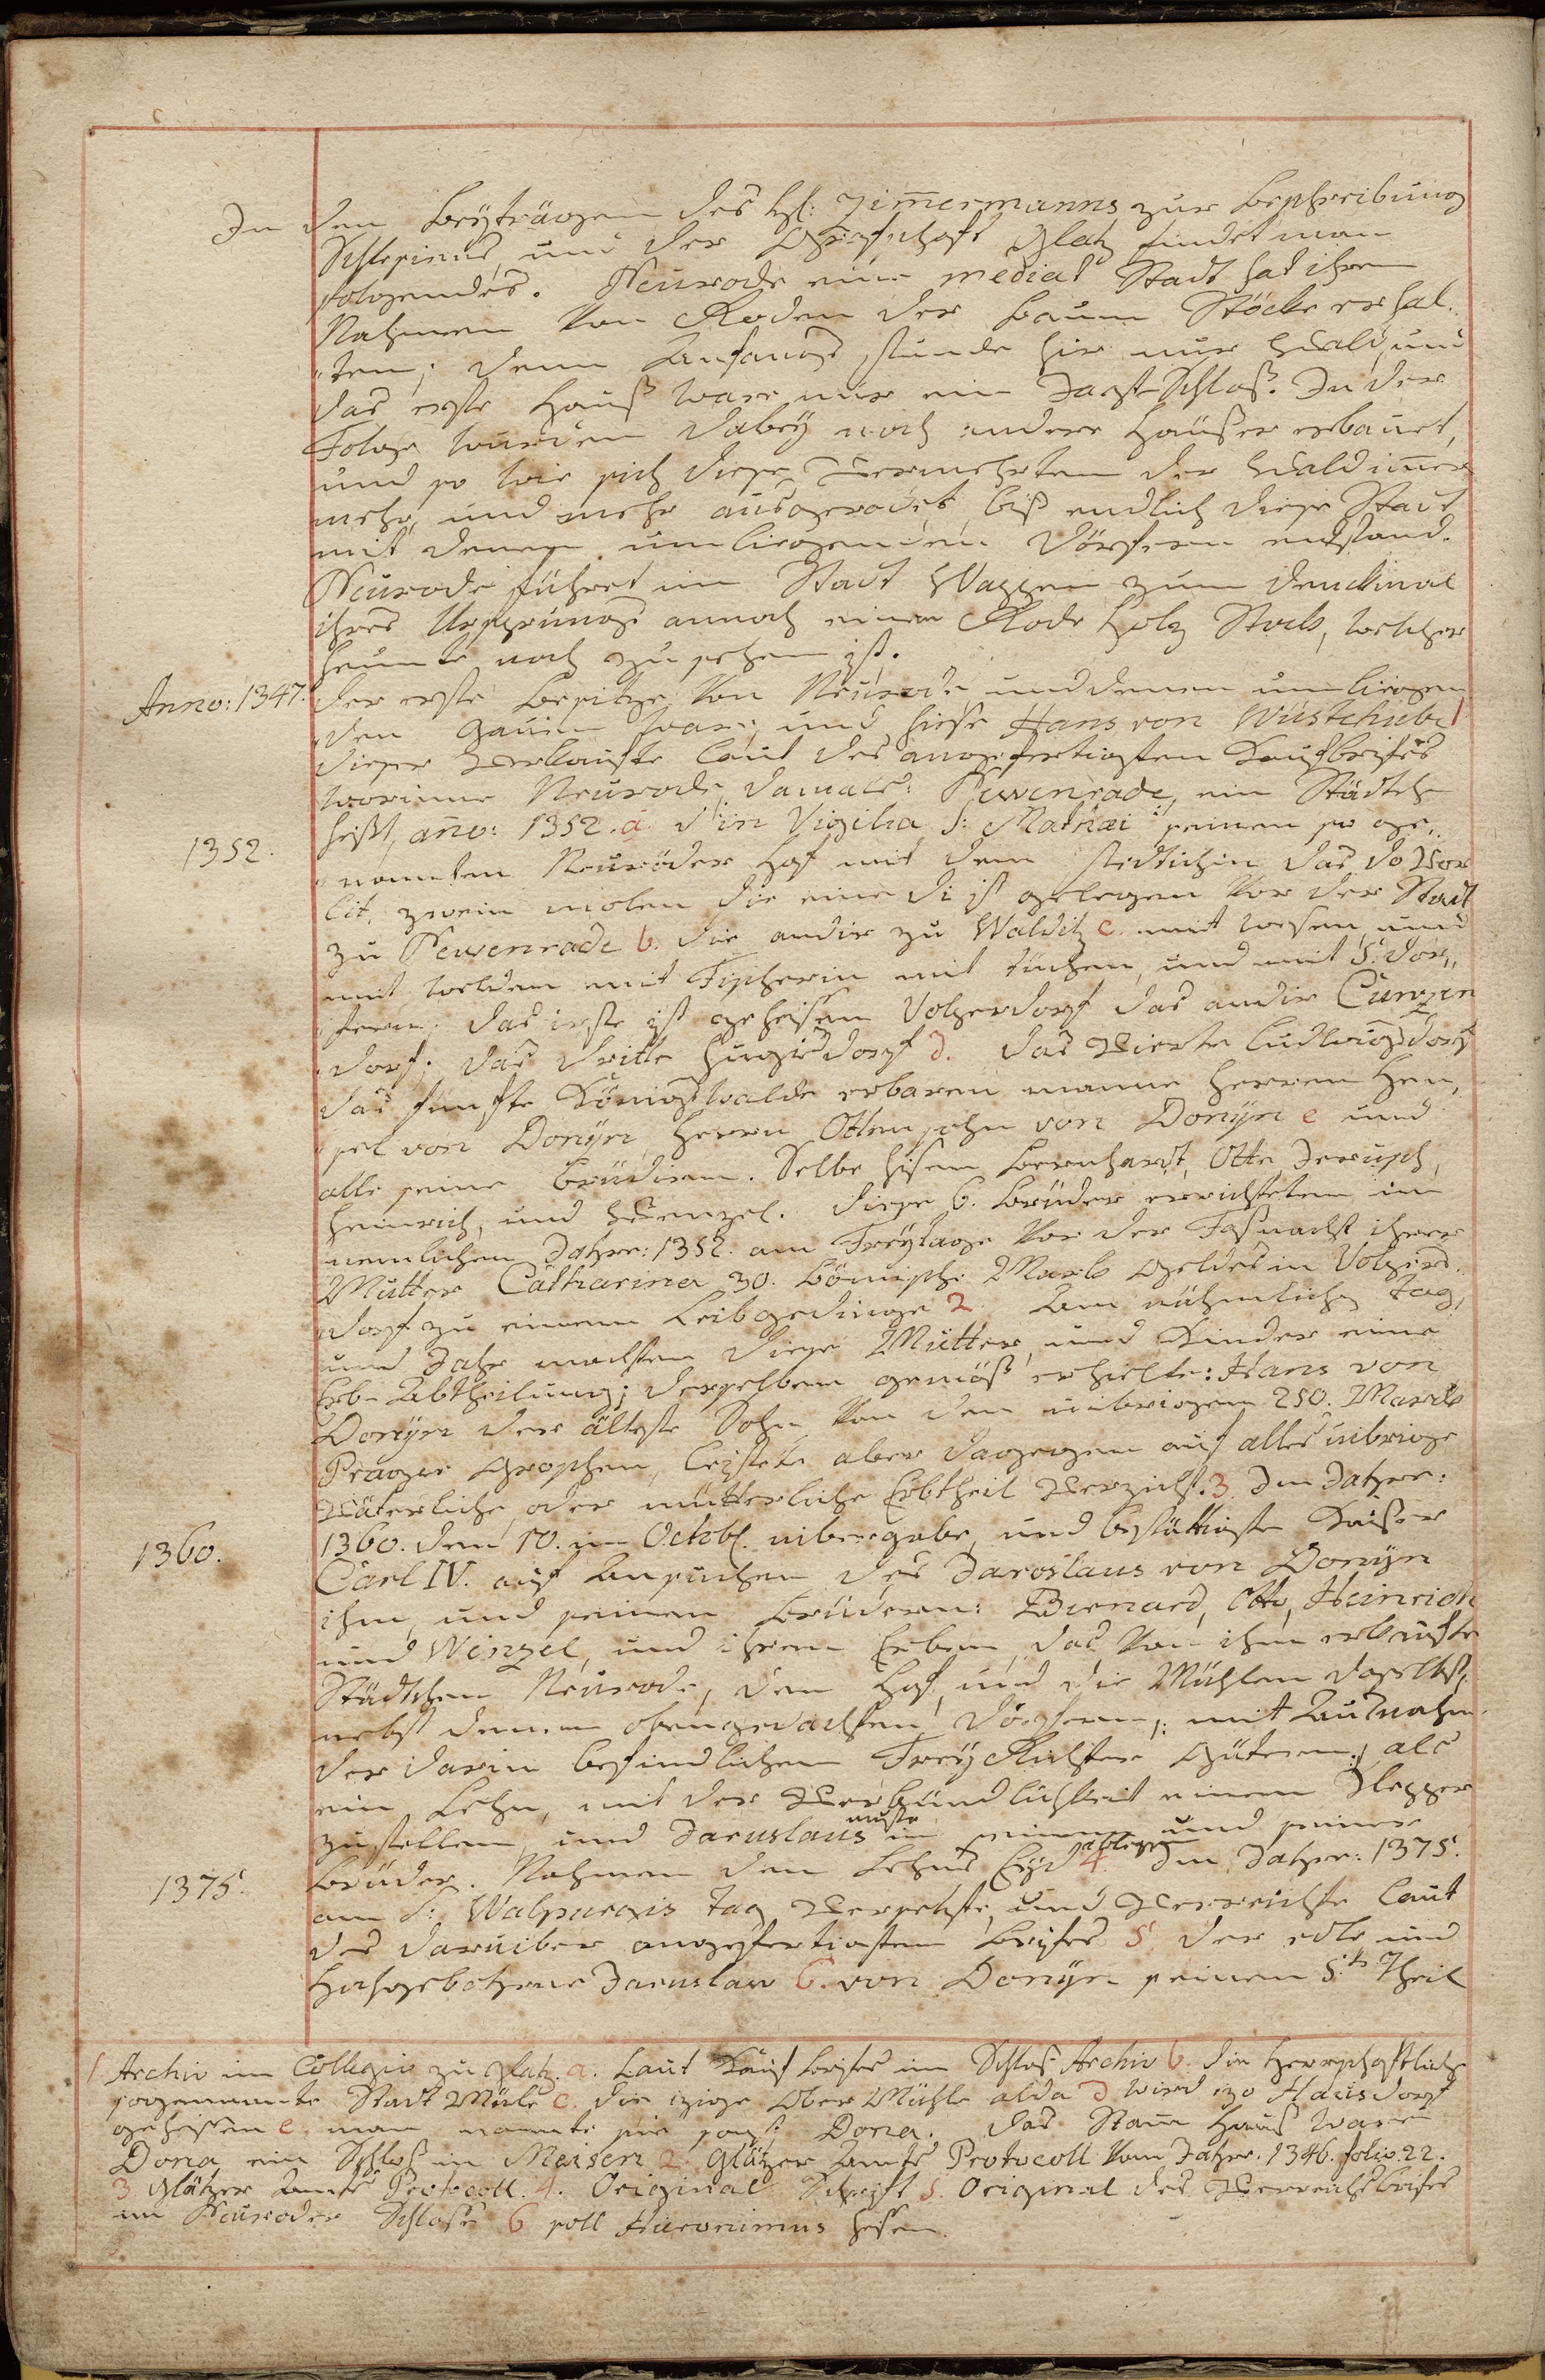 In den Beyträgen des H: Zimmermanns zur Beschreibung
Schlesiens und der Grafschaft Glatz findet man
folgendes. Neurode eine mediat Stadt hat ihren
Nahmen von Roden der Baum Stöcke erhal-
ten; denn Anfangs stunde hir nur Wald, und
das erste Hauß ware nur ein Jagt-Schloß. In der
Folge wurden dabey noch andere Häußer erbauet,
und so wie sich diese Vermehrten der Wald immer
mehr, und mehr ausgerodet, biß endlich diese Stadt
mit denen umliegenden Dörfern entstand.
Neurode führet im Stadt Wappen zum Denckmal
ihres Ursprungs annoch einen Rode Holz Stock, welcher
heunte noch zu sehen ist.
Anno: 1347. Der erste Besitze von Neurode und denen umliegen
den ware, und hiesse Hans von Wüstehube 1
Dieser Verkaufte laut des angefertigten Kaufbrifes
worinne Neurode damals: Newenrade, ein Städtch
1352. heißt, año: 1352. a. d'in Vigilia S: Mathæi: seinen so ge„
nannten Neuröder Hof mit dem stedtichin das do Vor
lit, zwein molen die eine di ist gelegen vor der Stadt
zu Newenrade b. die andir zu Walditz c. mit wesen, und
mit welden mit Fischerin mit tüchen, und mit 5. Dör„
fern. das irste ist geheissen Volgerdorf das andir Cunzen
dorf; das dritte Hugisdorf d. das Vierte Ludwigsdorf
das fünfte Königswalde erbaren manne Herren Hen„
sel von Donÿn, Herrn Otten sohn von Donÿn e und
alle seine brüdiren. Selbe hisen Bernhardt, Otte, Jerusch,
Heinrich, und Wenzel. Diese 6. Brüder errichteten im
nemlichen Jahre: 1352. am Freÿtage vor der Faßnacht ihrer
Mutter Catharina 30. Bömisch: Marck Geldes in Volgers
dorf zu einem Leibgedinge 2 Am nähmlichen Tag,
und Jahr machten diese Mutter, und Kinder eine
Erb-Abtheilung; derselben gemöß erhielte: Hans von
Donÿn der älteste Sohn von den uibrigen 250. Marck
Prager Groschen, leistete aber dagegen auf alles uibrige
Väterliche, oder mütterliche Erbtheil Verzicht. 3. Im Jahre:
1360. 1360. den 10. im Octob. uibergabe, und bestättigte Kaißer
Carl IV. auf Ansuchen des Jaroslaus von Donÿn
ihm, und seinen Brüdern: Bernard, Otto, Heinrich
und Wenzel, und ihren Erben, das von ihm erkaufte
Städtchen Neurode, den Hof, und die Mühlen daselbst,
nebst denen obengedachten Dörfern; mit Ausnahm
der darin befindlichen Freÿ Richter Gütern; als
ein Lehn, mit der Verbündlichkeit einen
zustellen, und Jaruslaus muste in seinem und seiner
1375. Brüder Nahmen den Lehns Eÿd ablegen 4. Im Jahre: 1375.
am S: Walpurgis tag Versetzte, und Verreichte laut
des daruiber angefertigten Brifes 5. der edle und
Hochgebohrne Jaruslaw 6. von Donÿn seinen 5.tn Theil
1 Archiv im Collegio zu Glatz. a. Laut Kauf Brifes im Schlos Archiv b. Die Herrschaftliche
sogenannte Stadt Müle c. die izige Ober Mühle alda d wird izo Hausdorf
geheissen e. man nannte sie sonst Dona. Das Stam̄ Haus ware
Dona ein Schlos in Meisen 2 Glätzer Amts Protocoll vom Jahre. 1346. folio 22.
3 Glätzer Amts Protocoll. 4. Original Schrift 5. Original des Verreichsbrifes
im Neuroder Schlosse 6 soll Hieronimus heisen.